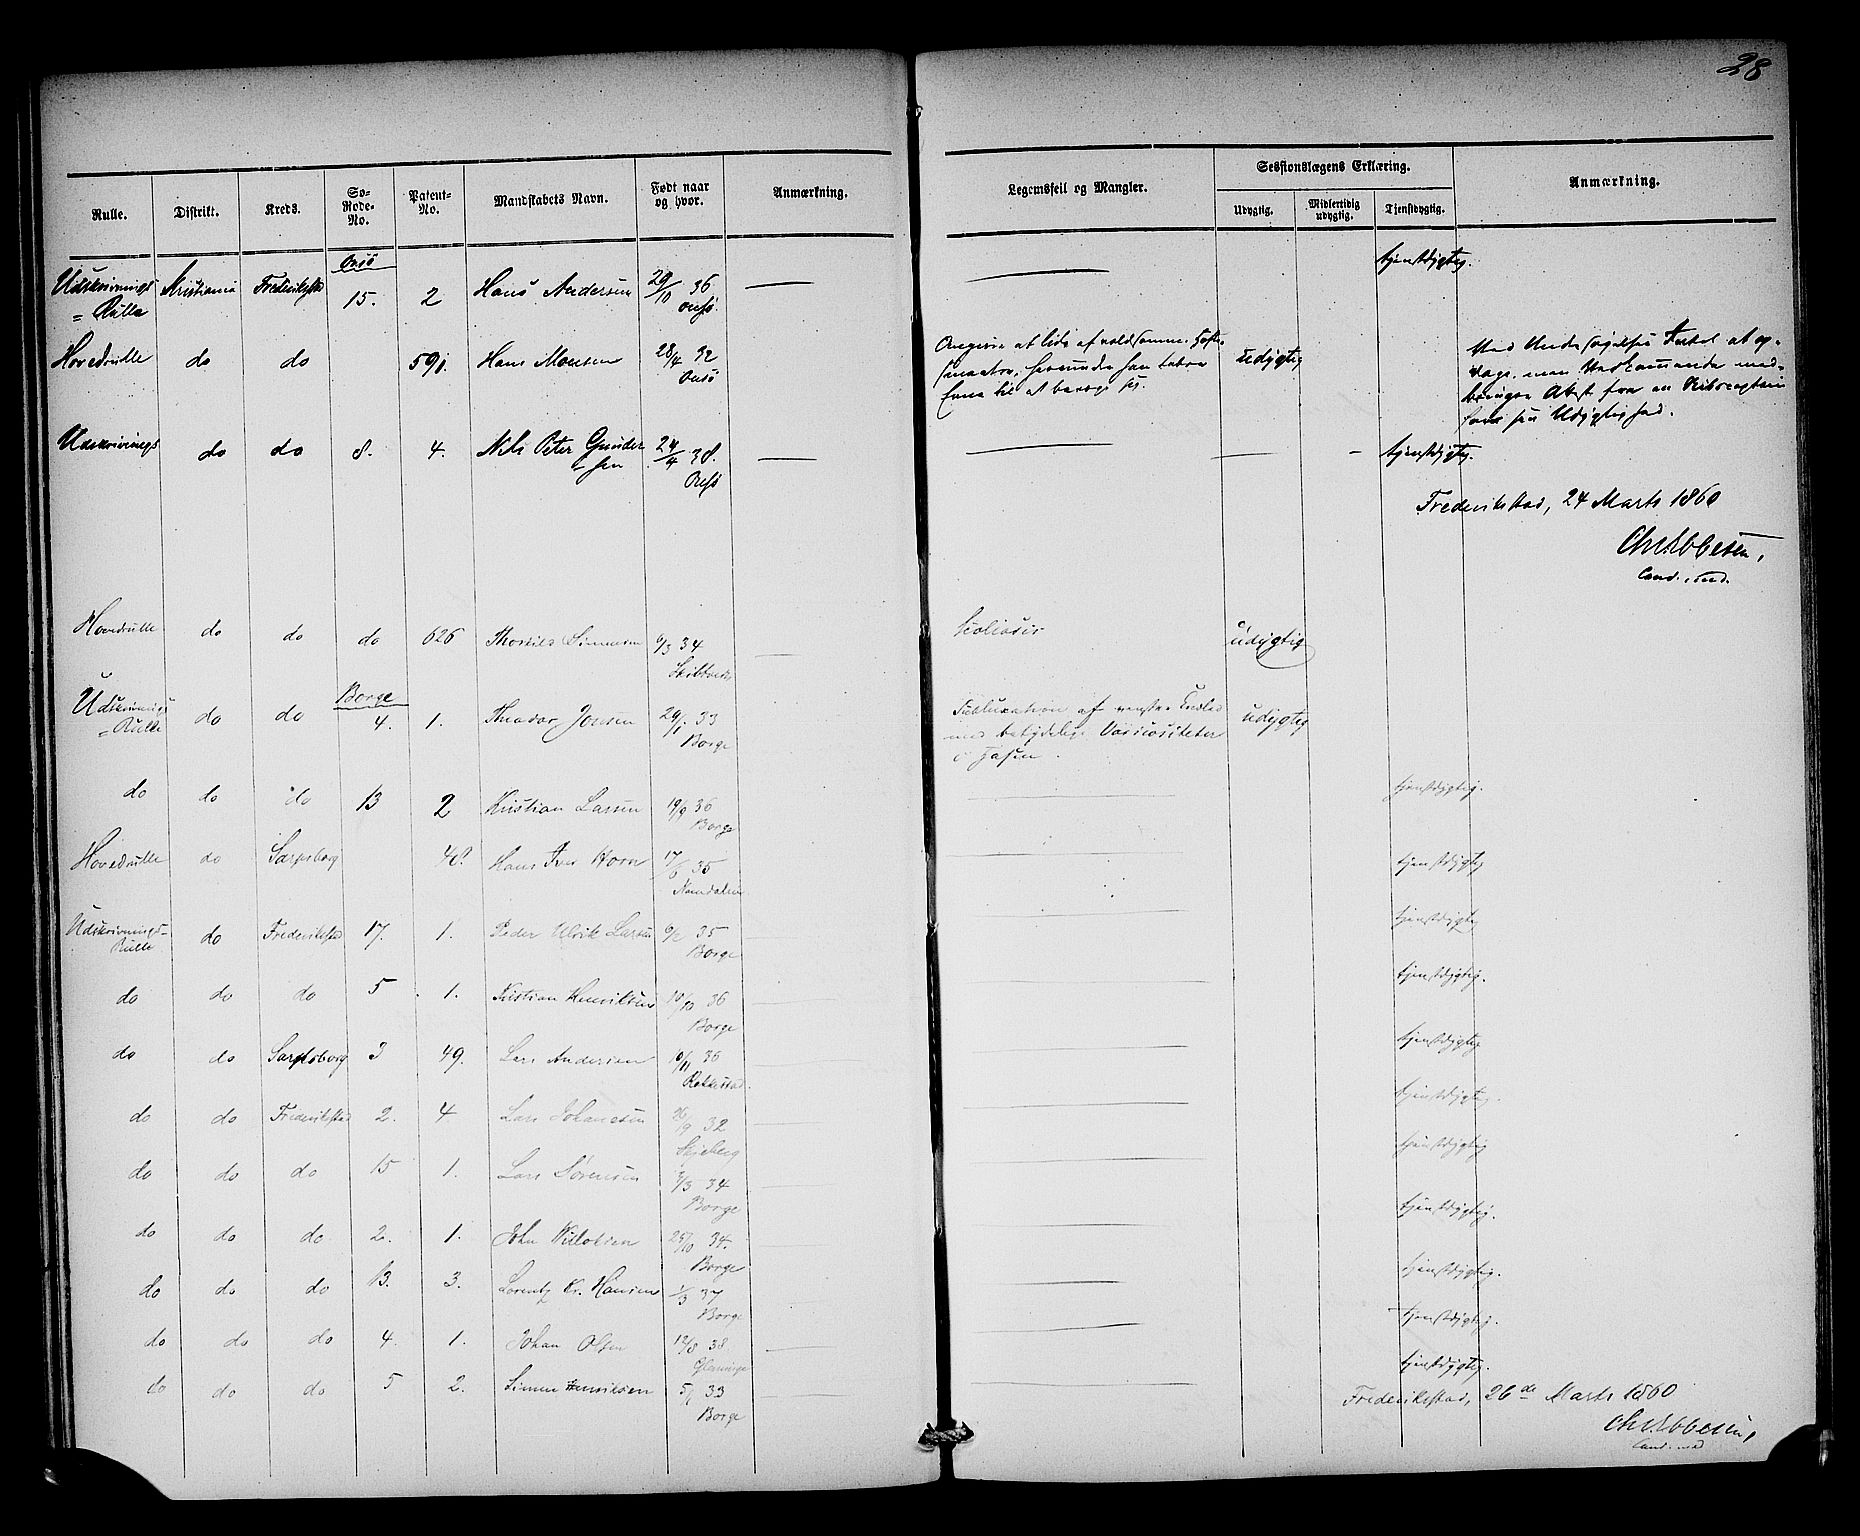 28
Rulle. Distrikt. Kreds. Sø-Rode-No. Patent-No. Mandskabets Navn. Født naar og hvor. Anmærkning. Legemsfeil og Mangler. Sessionslægens Erklæring. Anmærkning.
Udygtig. Midlertidig udygtig. Tjenstdygtig.
Onsö
Udskrivnings Kristiania Frederikstad 15. 2 Hans Andersen 29/10 36 — — tjenstdygtig.
= Rulle Onsö.
Hovedrulle do do 591. Hans Monsen 28/4 32 Angives at lide af voldsomme Hofte- udygtig Ved Undersøgelse at op-
Onsö smerter, hvorunder han taber
Evne til at bevæge sig. bringer Attest fra en Skibscaptein
for sin Udygtighed.
Udskrivnings do do 8. 4. Nils Peter Gunder 24/4 38. — — — — tjenstdygtig.
sen Onsö
Frederikstad, 24 Marts 1860
Chr. Ebbesen,
Cand. med.
Hovedrulle do do do 626 Simensen 6/3 34 — Scoliosis udygtig
Borge
Udskrivnings do do 4. 1. Theodor Jensen 29/1 33 Subluxation af venstre udygtig
= Rulle Borge med betydelige Varicositeter
i Hasen.
do do do 13 2 Kristian Larsen 19/9 36 — tjenstdygtig.
Borge
Hovedrulle do Sarpsborg 48. Hans Iver Horn 17/6 35 — tjenstdygtig
Namdalen
Udskrivnings- do Frederikstad 17. 1. Peder Ulrik Larsen 6/2 35 — — tjenstdygtig
Rulle Borge
do do do 5 1. Kristian Henriksen 10/10 36 — — tjenstdygtig.
Borge
do do Sarpsborg 3 49. Lars Andersen 10/11 36 — — tjenstdygtig
Rakkestad.
do do Frederikstad 2. 4. Lars Johanesen 16/9 32 — — tjenstdygtig.
Skjeberg
do do do 15 1. Lars Sørensen /3 34 — — tjenstdygtig
Borge
do do do 2. 1. John 25/10 34. — — tjenstdygtig.
Borge
do do do 13. 3. Lorentz Kr. Hansen 1/3 37 — — tjenstdygtig.
Borge
do do do 4. 1. Johan Olsen 12/8 38 — — tjenstdygtig.
Glemminge
do do do 5 2. Simen Henriksen 5/1 33 — tjenstdygtig.
Borge
Frederikstad, 26de Marts 1860
Chr. Ebbesen,
Cand. med